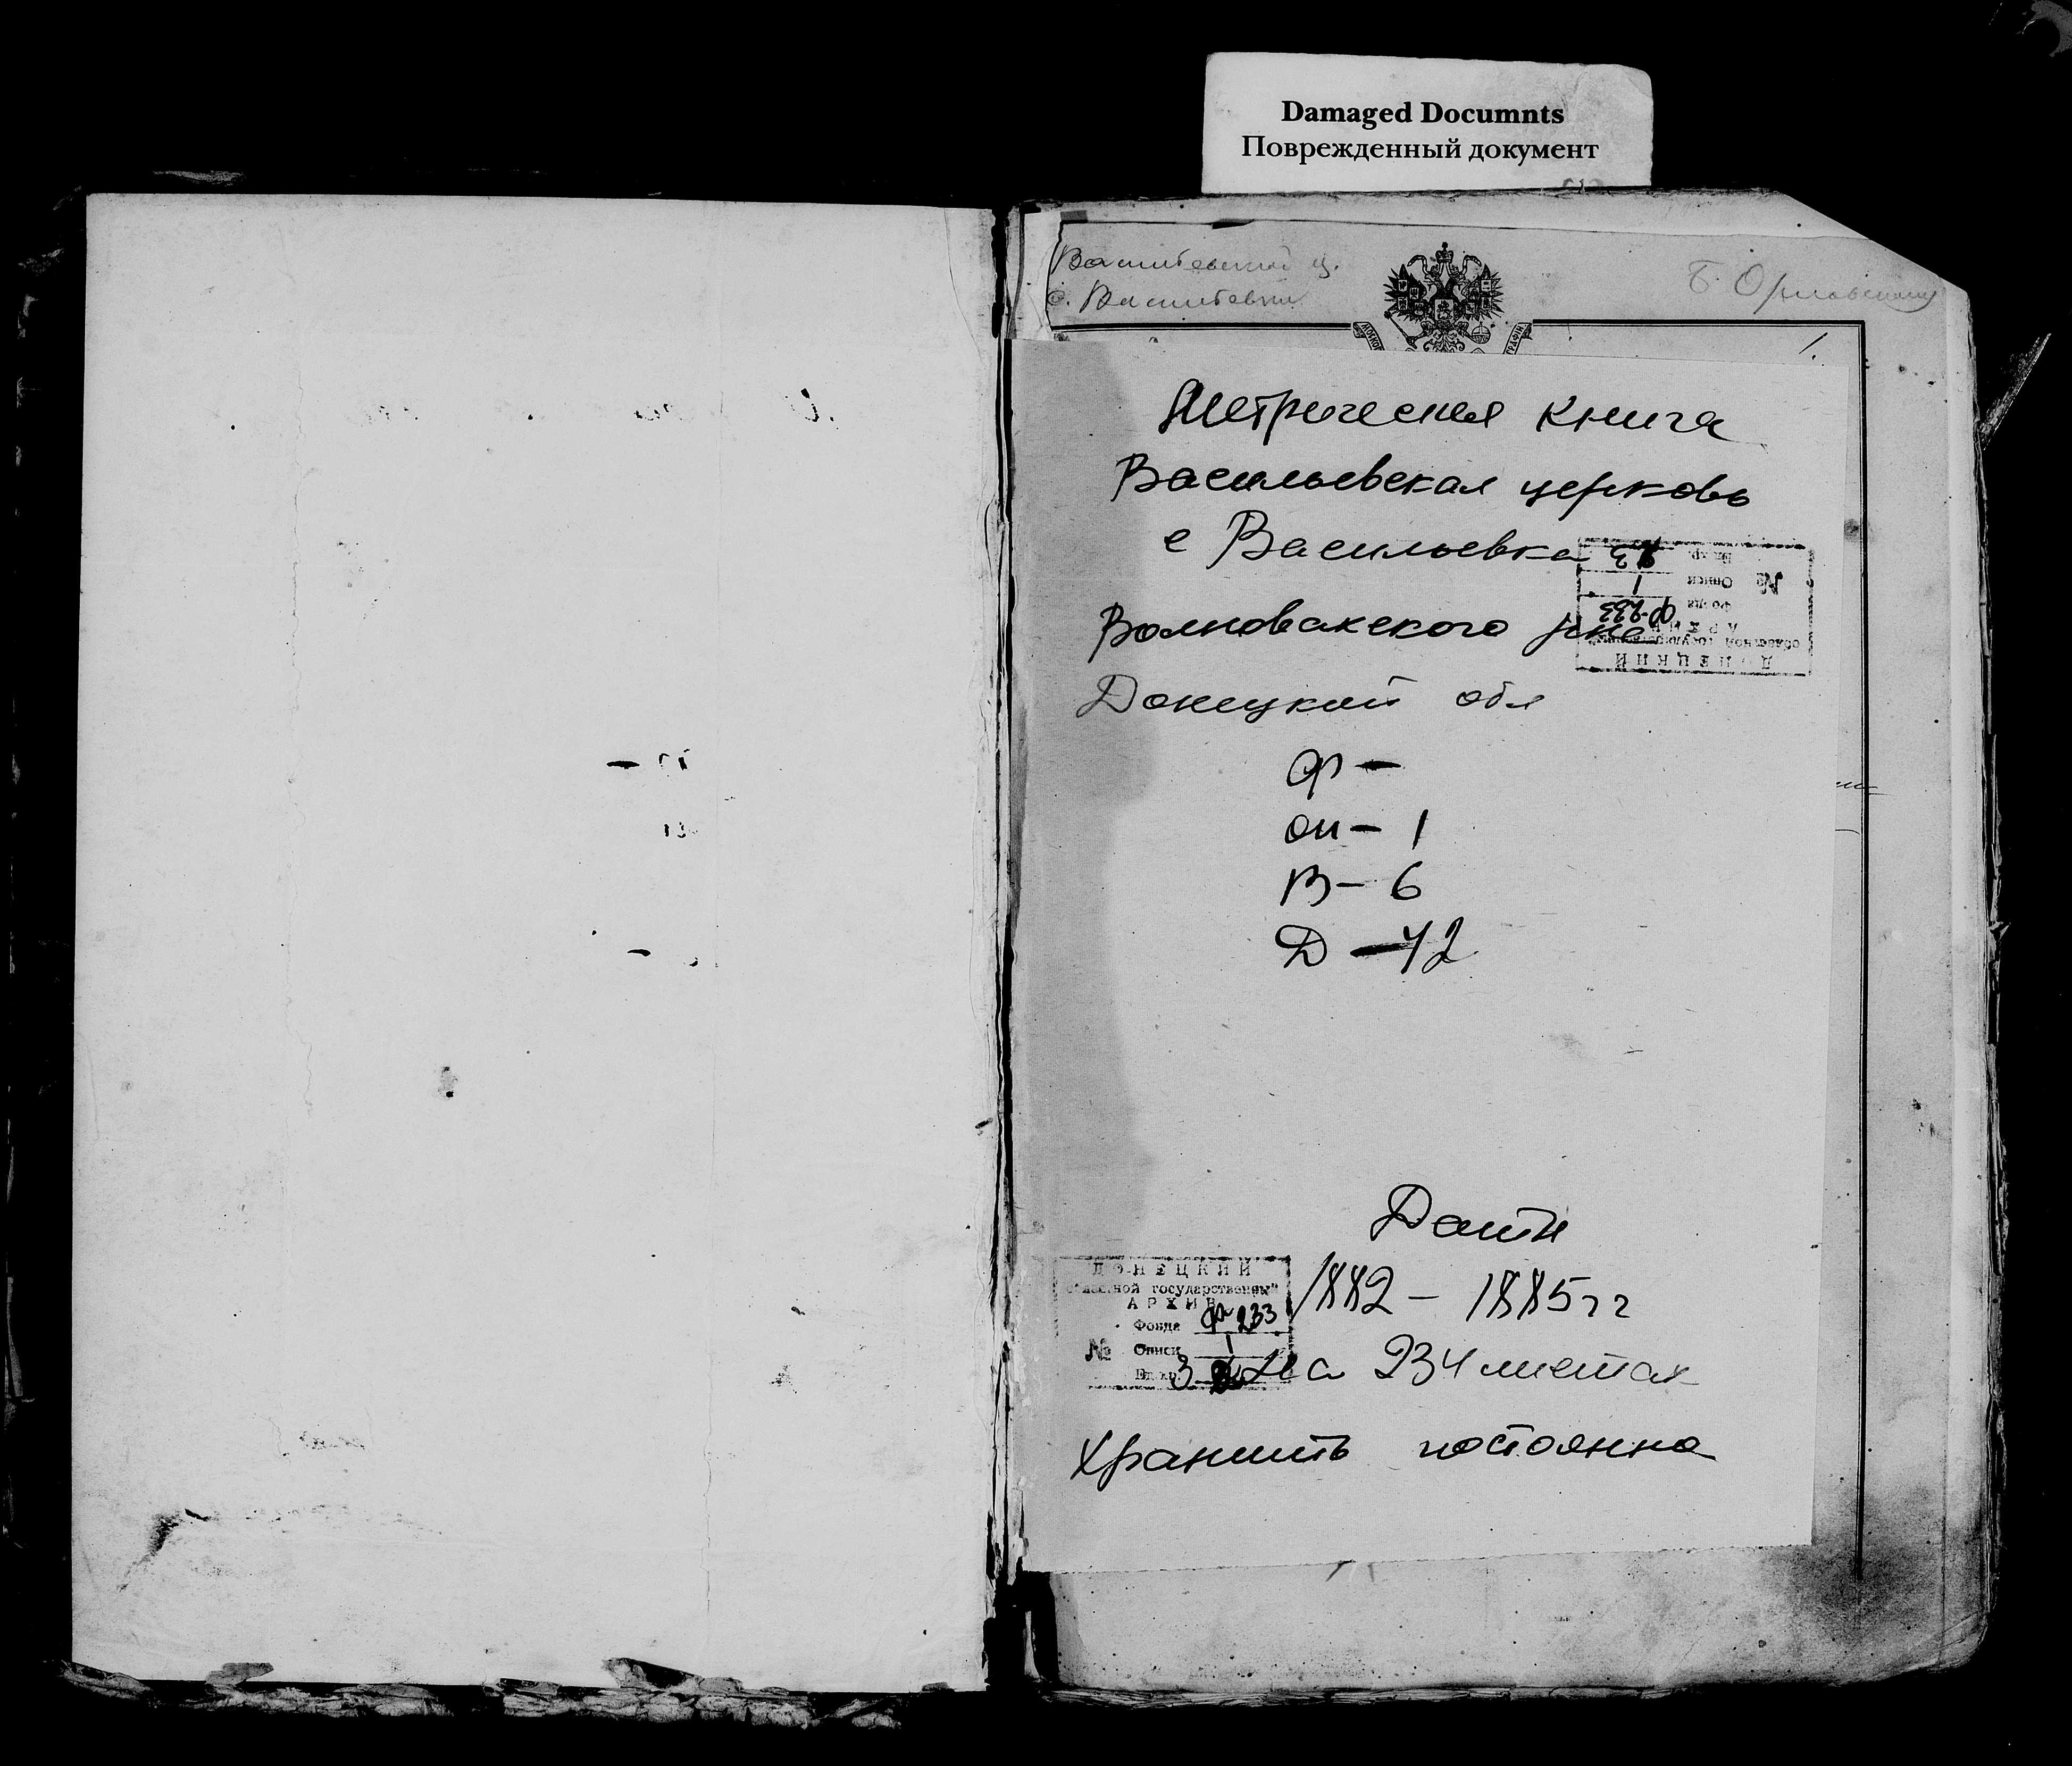 Damaged Documnts
Поврежденный документ
Васильевской ц.
с. Васильевки
Б. Орловский
1.
Метрическая книга
Васильевская церковь
с Васильевка
Волновахского р-на
Донецкой обл
Ф –
Оп – 1
В – 6
Д – 42
ДОНЕЦКИЙ
областной государственный
АРХИВ
Фонда Ф-233
№ Описи 1
Ед.хр. 3
Даты
1882 – 1885 гг
ДОНЕЦКИЙ
областной государственный
АРХИВ
Фонда Ф 233
№ Описи 1
Ед.хр. 3
На 234 листах
Хранить постоянно